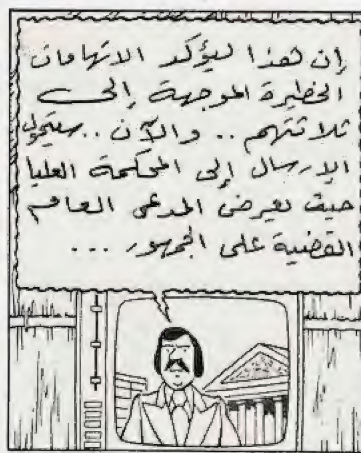 إن هذا ليؤكد الاتهامات
الخطيرة الموجهة إلى
ثلاثتهم .. والآن .. سيتحول
الإرسال إلى المحكمة العليا
حيث يعرض المدعى العام
القضية على الجمهور ...